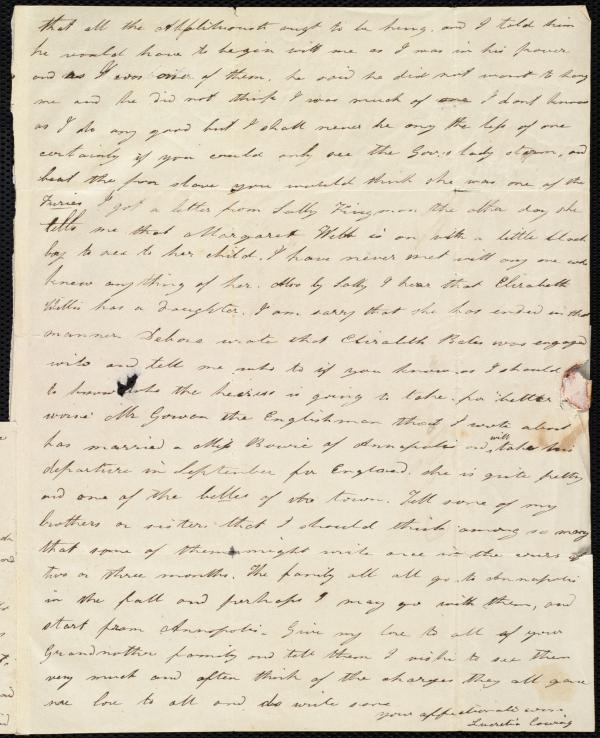 that all the Abolitionists ought to be hung, and I told him
he would have to begin with me as I was in his power
and as I was one of them. he said he did not want to hang
me and he did not think I was much of one I dont know
as I do any good but I shall never be any the less of one
certainly if you could only see the Gov,s lady storm, and
beat the poor slave you would think she was one of the
Furies I got a letter from Sally Kingman the other day she
tells me that Margaret Webb is on with a little black
boy to see to her child. I have never met with any one who
knew any thing of her. Also by Sally I hear that Elizabeth
Willis has a daughter. I am sorry that she has ended in that
manner Debora wrote that Elizabeth Bates was engaged
write and tell me who to if you know as I should
to know who the heiress is going to take for better
worse Mr Gowen the Englishman that I wrote about
has married a Miss Bowie of Annapolis and will takes his
departure in September for England. she is quite pretty
and one of the belles of the town. Tell some of my
brothers or sisters that I should think among so many
that some of them might write once in the course of
two or three months. The family all all go to Annapolis
in the fall and perhaps I may go with them, and
start from Annopolis. Give my love to all of your
Grandmother family and tell them I wish to see them
very much and often think of the charges they all gave
me love to all and do write soon
your affectionate
Lucretia Cowing